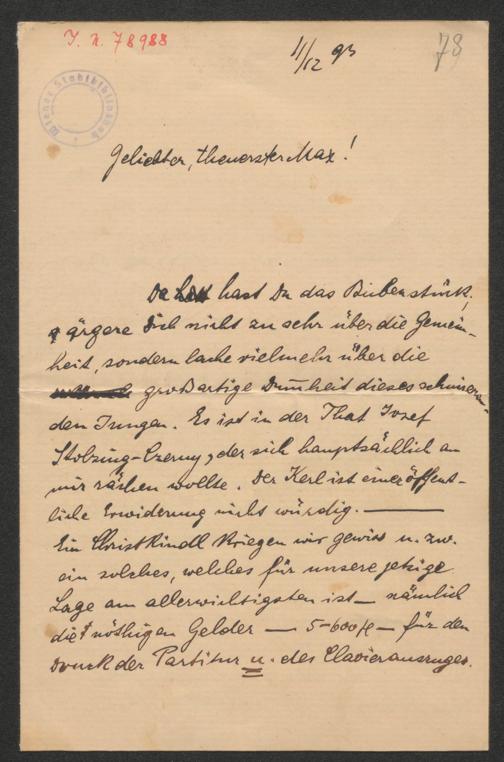 I. N. 78988
78
11/12 93
Wiener Stadtbibliothek
Geliebter, theuerster Max!
Da hast Du das Bubenstück,
ärgere Dich nicht zu sehr über die Gemein-
heit, sondern lache vielmehr über die
großartige Dummheit dieses
den Jungen. Es ist in der That Josef
Stolzing-Czerny, der sich hauptsächlich an
mir rächen wollte. Der Kerl ist einer öffent-
liche Erwiderung nicht würdig. —
Ein Christkindl kriegen wir gewiss u. zw.
ein solches, welches für unsere jetzige
Lage am allerwichtigsten ist — nämlich
die nöthigen Gelder — 5-600 fl — für den
Druck der Partitur u. des Clavierauszuges.